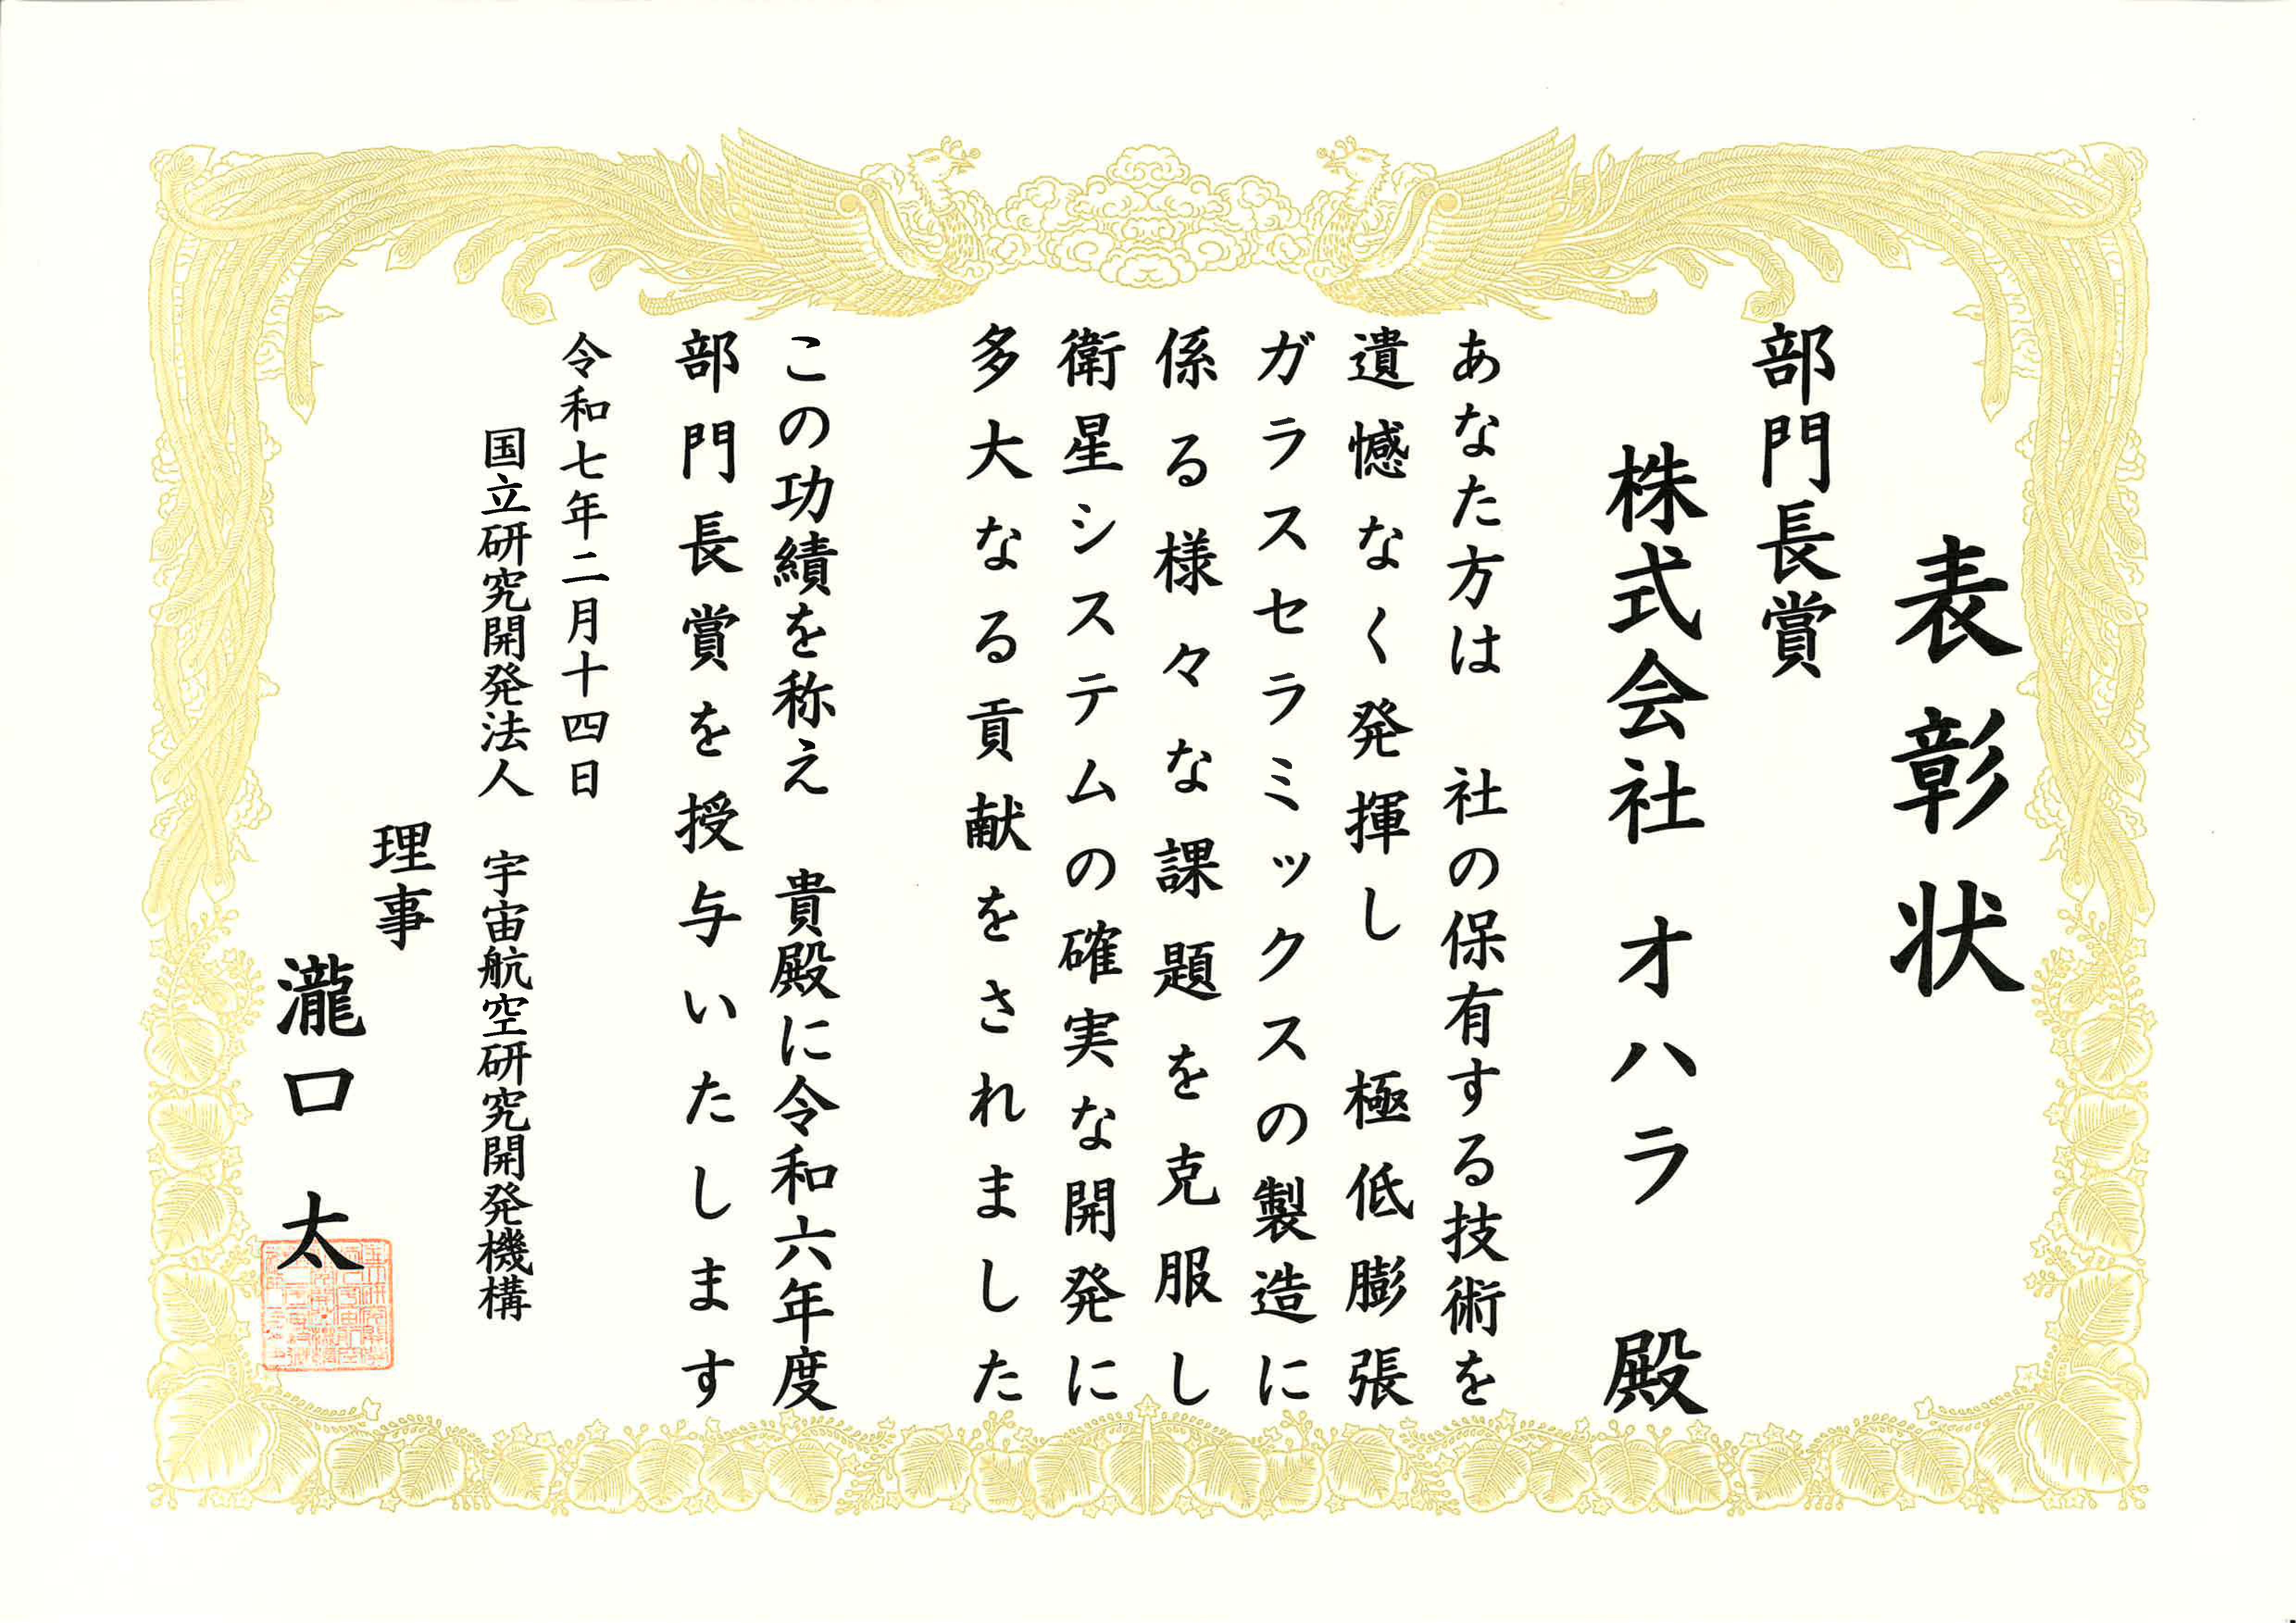 表彰状
部門長賞
株式会社 オハラ 殿
あなた方は 社の保有する技術を
遺憾なく発揮し 極低膨張
ガラスセラミックスの製造に
係る様々な課題を克服し
衛星システムの確実な開発に
多大なる貢献をされました
この功績を称え 貴殿に令和六年度
部門長賞を授与いたします
令和七年二月十四日
国立研究開発法人 宇宙航空研究開発機構
理事
瀧口 太